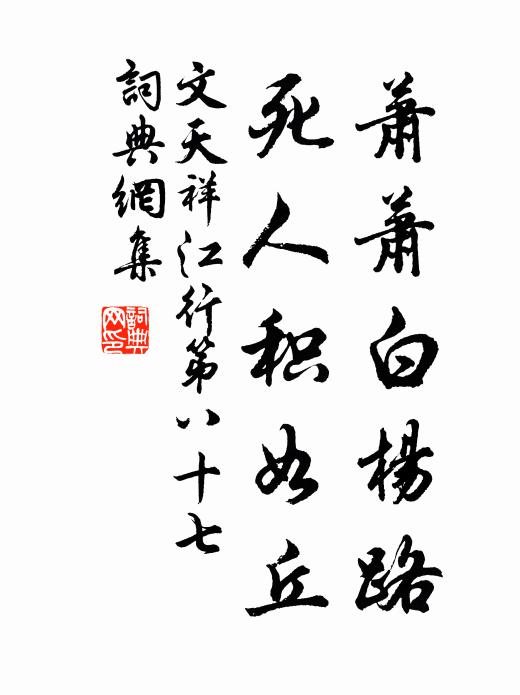 萧萧白杨路
死人积如丘
文天祥江行第八十七
詞典網集
詞典网印